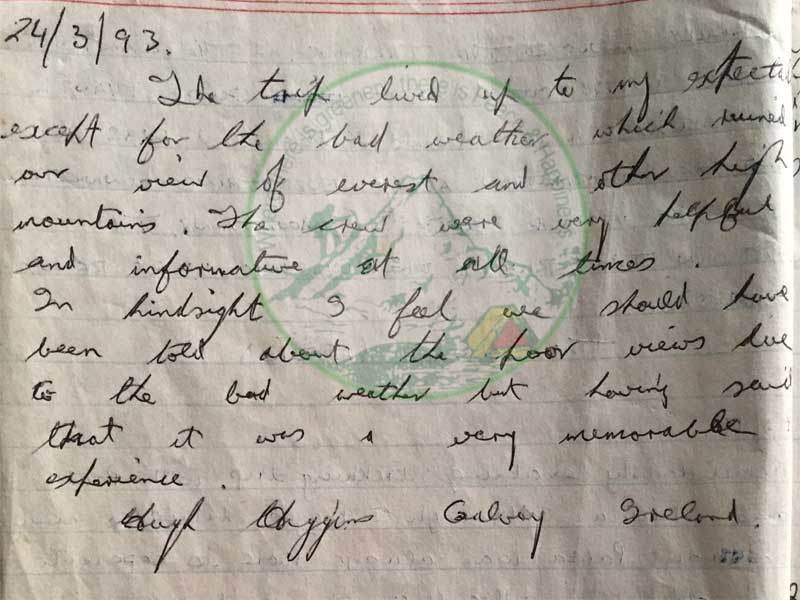 24/3/93.
The trip lived up to my expecta
except for the bad weather which ruined
our view of everest and other high
mountains. The crew were very helpful
and informative at all times.
In hindsight I feel we should have
been told about the poor views due
to the bad weather but having said
that it was a very memorable
experience.
Hugh Higgins Galway Ireland.